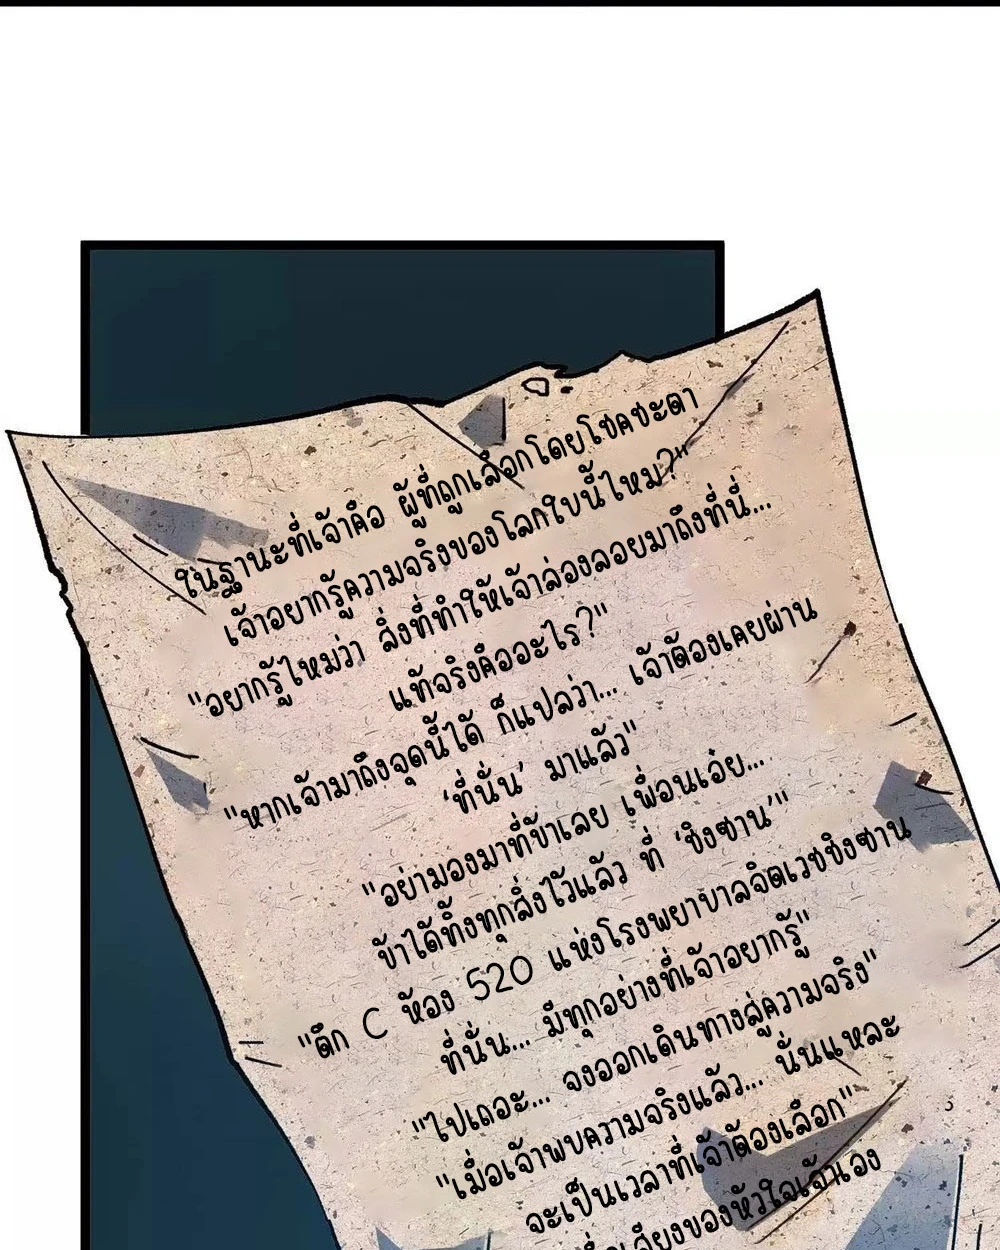 ในฐานะที่เจ้าคือ ผู้ที่ถูกเลือกโดยโชคชะตา
เจ้าอยากรู้ความจริงของโลกใบนี้ไหม?"
"อยากรู้ไหมว่า สิ่งที่ทำให้เจ้าล่องลอยมาถึงที่นี่...
แท้จริงคืออะไร?"
"หากเจ้ามาถึงจุดนี้ได้ ก็แปลว่า... เจ้าต้องเคยผ่าน
‘ที่นั่น’ มาแล้ว"
"อย่ามองมาที่ข้าเลย เพื่อนเอ๋ย...
ข้าได้ทิ้งทุกสิ่งไว้แล้ว ที่ ‘ชิงซาน’"
"ตึก C ห้อง 520 แห่งโรงพยาบาลจิตเวชชิงซาน
ที่นั่น... มีทุกอย่างที่เจ้าอยากรู้"
"ไปเถอะ... จงออกเดินทางสู่ความจริง"
"เมื่อเจ้าพบความจริงแล้ว... นั่นแหละ
จะเป็นเวลาที่เจ้าต้องเลือก"
เสียงของหัวใจเจ้าเอง